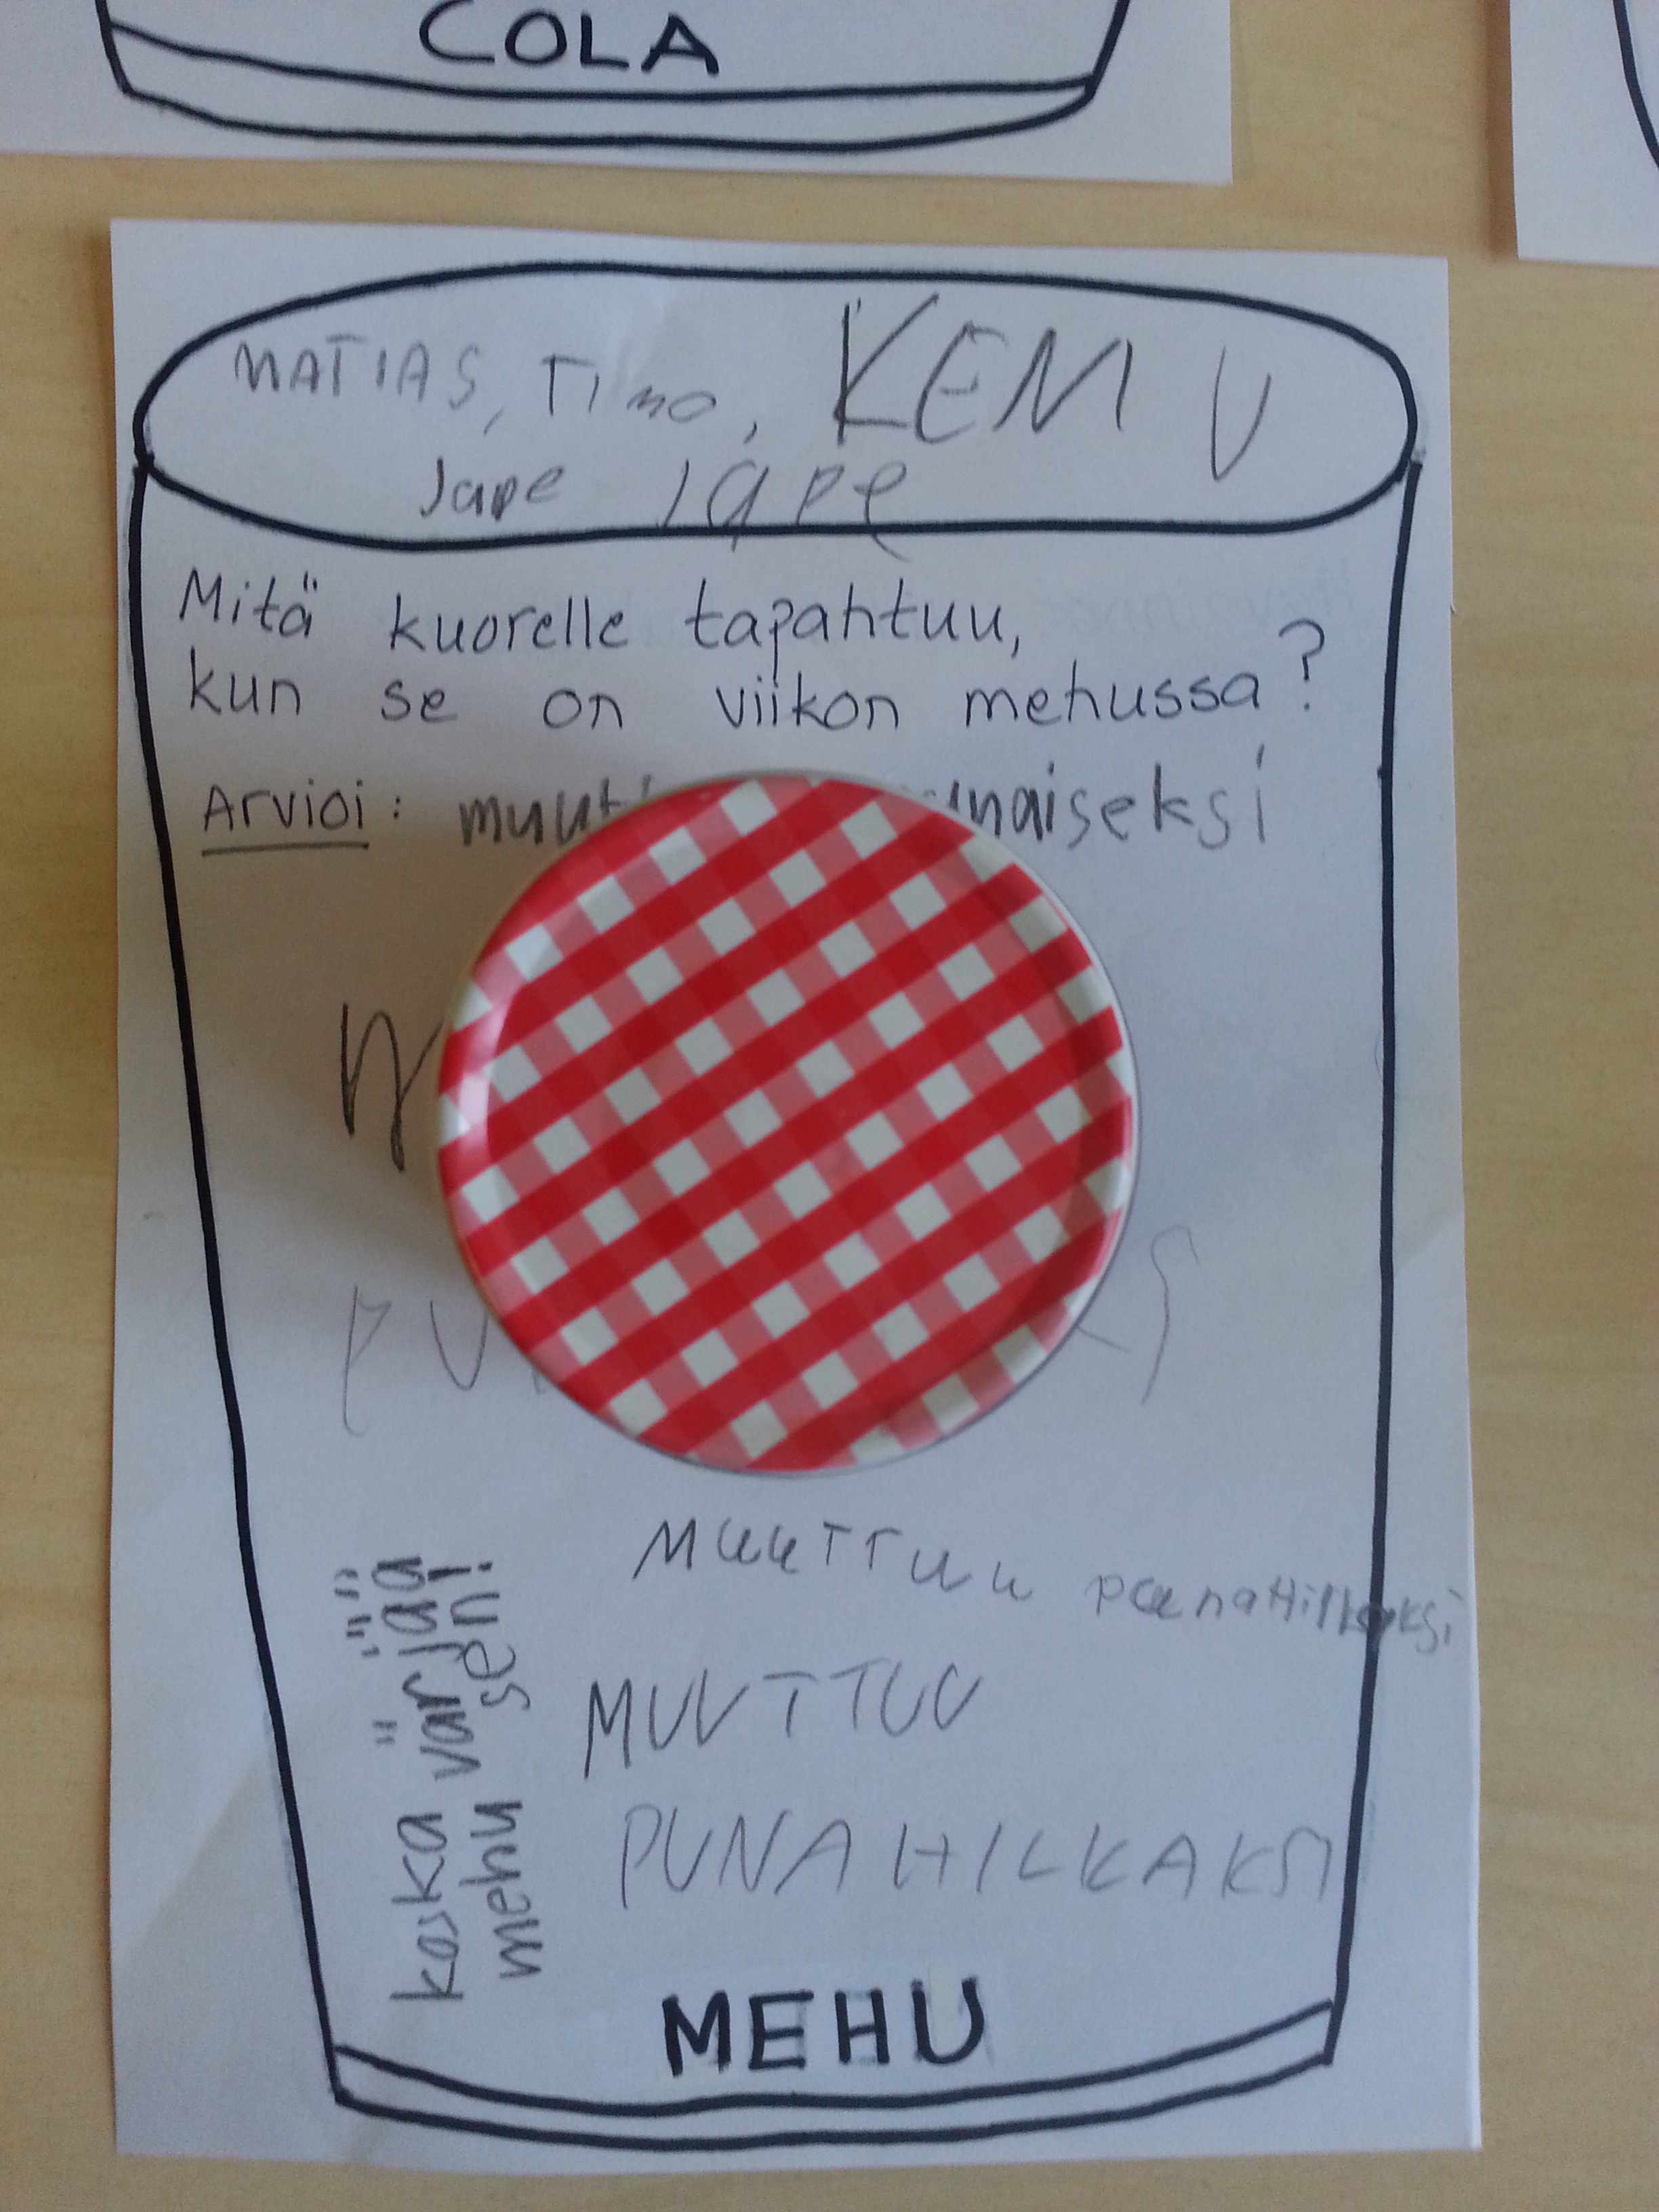 COLA
MATIAS, Timo, KEMU
Jape Jape
Mitä kuorelle tapahtuu,
kun se on viikon mehussa?
Arvioi:
MuuTTuu punaHilkaksi
MUUTTUU
PUNAHILKAKSI
koska värjää
mehu sen!
MEHU